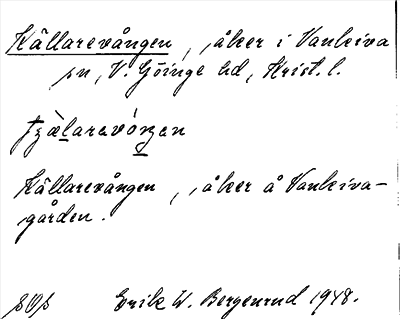 Källarevången, åker i Vankiva
sn, V. Göinge hd, Krist. l.
Källarevången, åker å Vankiva-
gården.
Erik W. Bergenrud 1948.